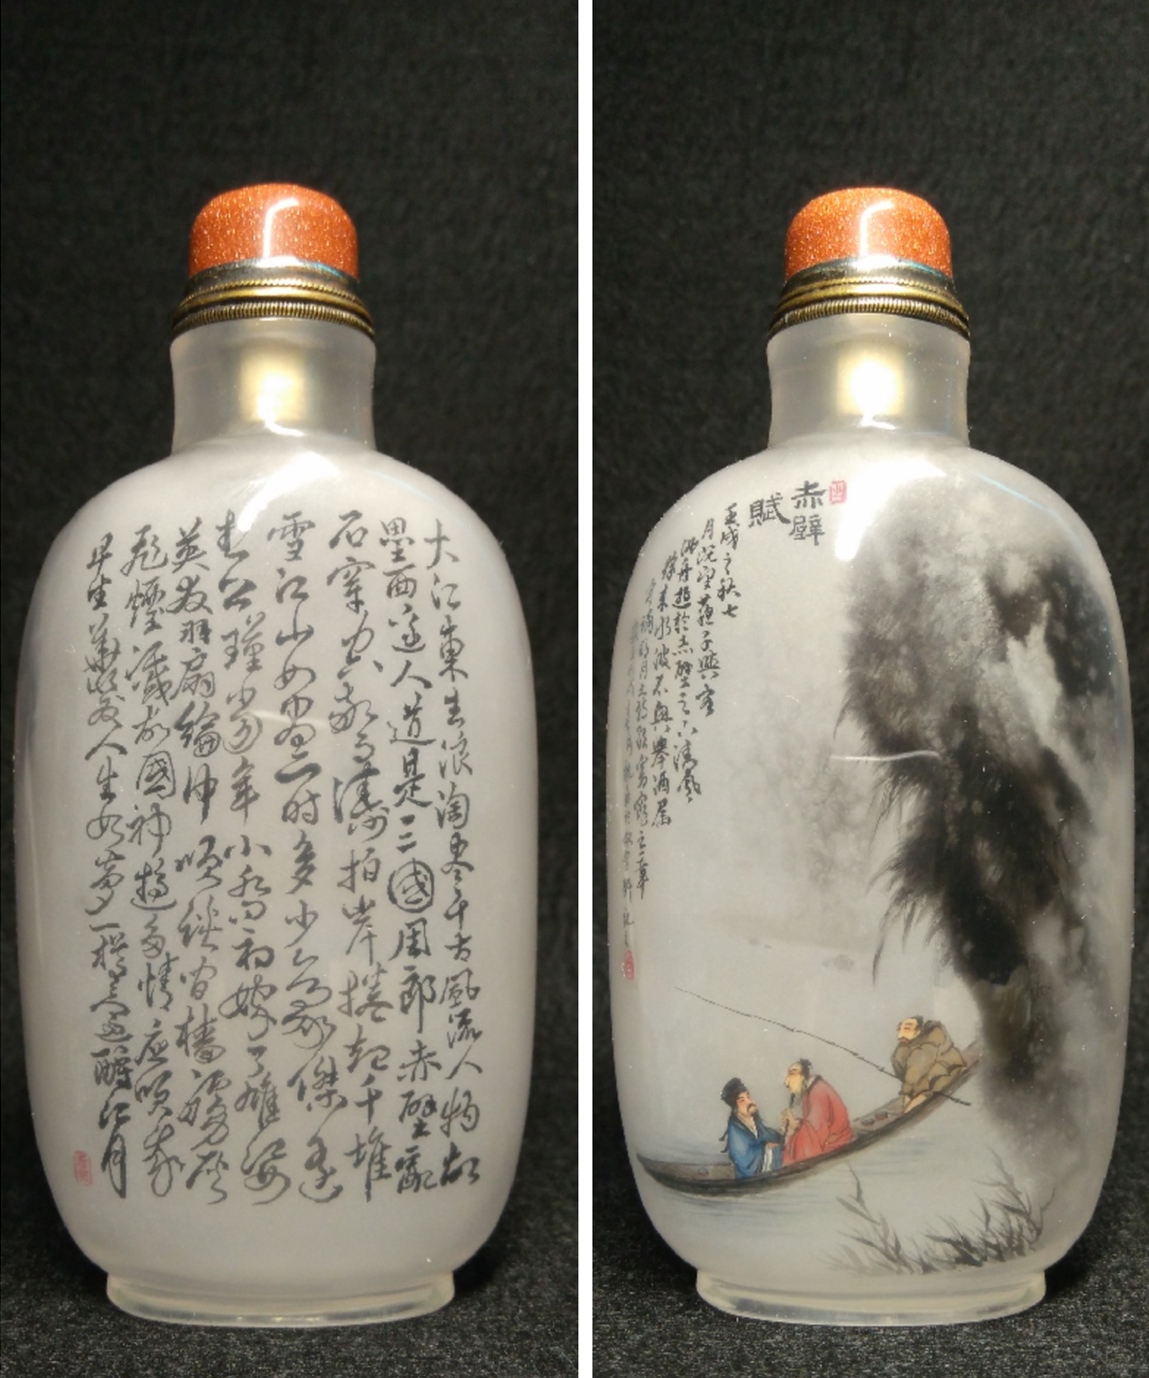 大江東去浪淘尽千古風流人物故
壘西邊人道是三國周郎赤壁亂
石穿空驚濤拍岸捲起千堆
雪江山如画一时多少豪傑遥
想公瑾當年小喬初嫁了雄姿
英发羽扇綸巾咲談间檣櫓灰
飛煙滅故國神遊多情應咲我
早生華髮人生如夢一樽還酹江月
赤壁
賦
壬戌之秋七
月既望蘇子與客
泛舟遊於赤壁之下清風
徐来水波不興舉酒屬
客誦明月之詩歌窈窕之章